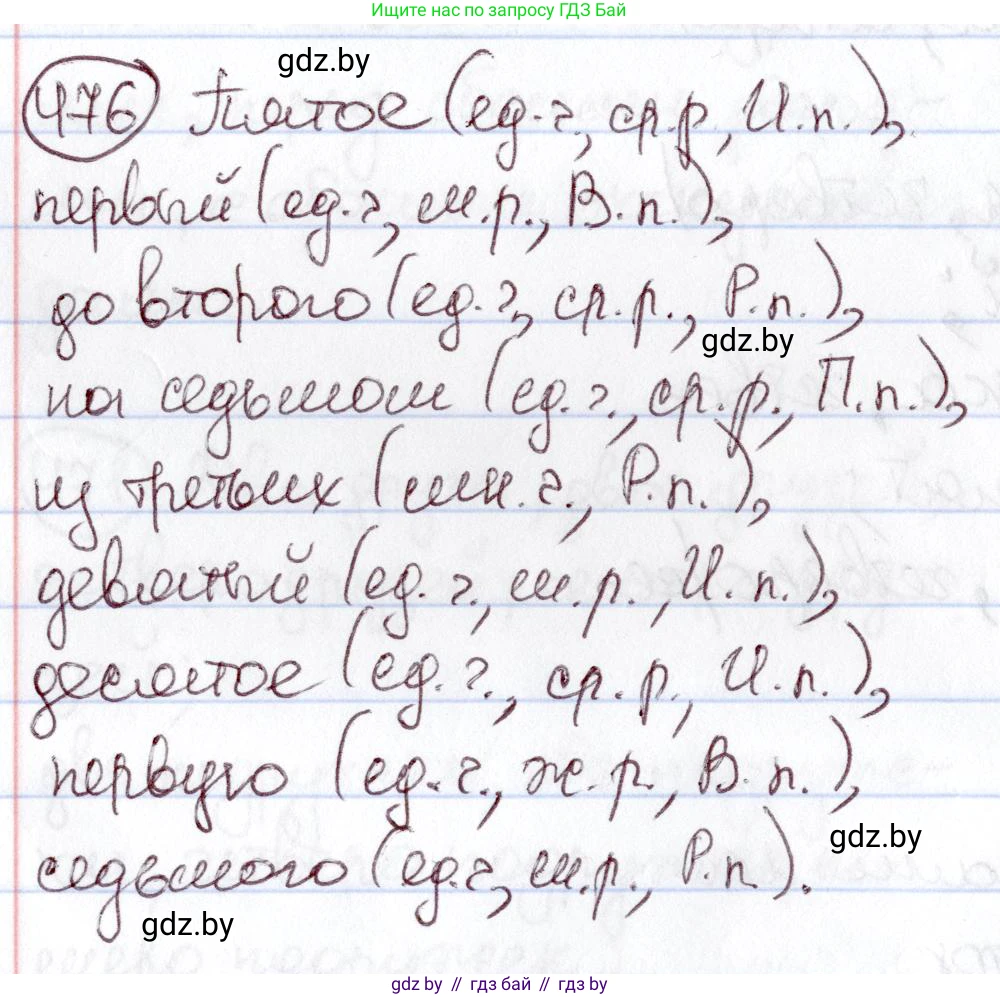 Ищите нас по запросу ГДЗ Бай
gdz.by
476 Пятое (ед.ч., ср.р., И.п.),
первый (ед.ч, м.р., В.п.),
до второго (ед.ч, ср.р., Р.п.),
gdz.by
на седьмом (ед.ч., ср.р., П.п.),
из третьих (мн.ч., Р.п.),
девятый (ед.ч., м.р., И.п.),
десятое (ед.ч., ср.р., И.п.),
первую (ед.ч., ж.р., В.п.),
gdz.by
седьмого (ед.ч, м.р., Р.п.).
gdz.by
gdz.by // гдз бай // gdz.by